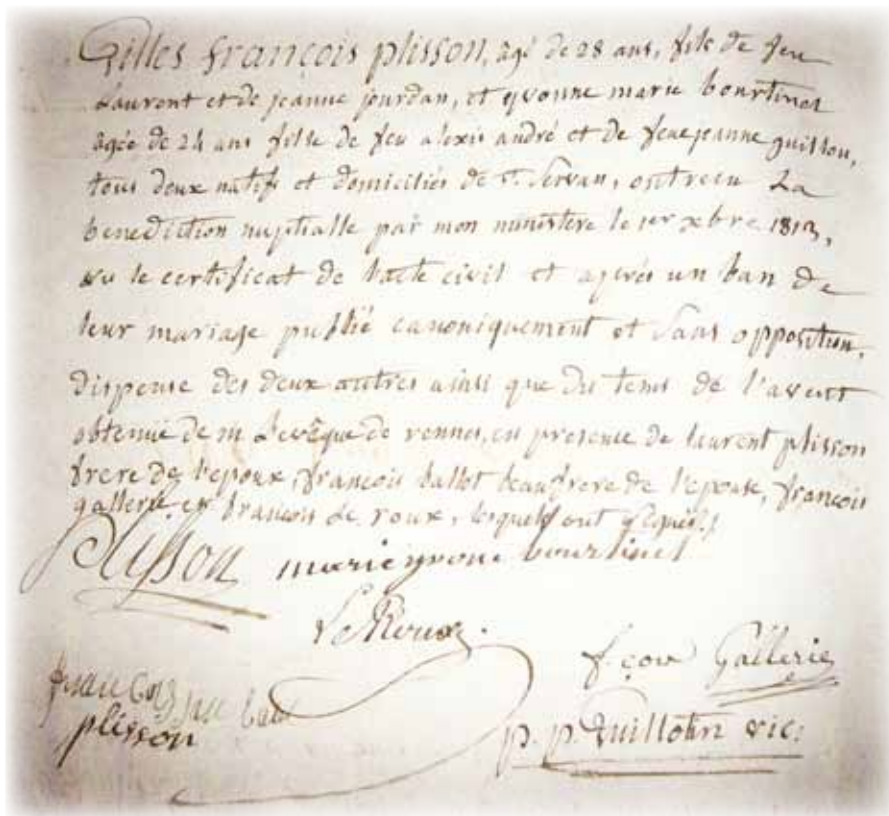 Gilles françois plisson, agé de 28 ans, fils de feu
Laurent et de jeanne jourdan, et yvonne marie bourtinel
agée de 24 ans fille de feu alexis andré et de feue jeanne guillou,
tous deux natifs et domiciliés de St. Servan, ont recu La
benediction nuptialle par mon ministere le 1er xbre 1813,
vu le certificat de l'acte civil et aprés un ban de
leur mariage publié canoniquement et sans opposition,
dispense des deux autres ainsi que du tems de l'avent
obtenue de m L'evêque de rennes, en presence de laurent plisson
frere de l'epoux, françois ballot beaufrere de l'epouse, françois
gallerie et francois Le roux, lesquels ont signé./.
Plisson marie yvone bourtinel
Le Roux.
fçois Gallerie
plisson
p. p. Guillotin vic.